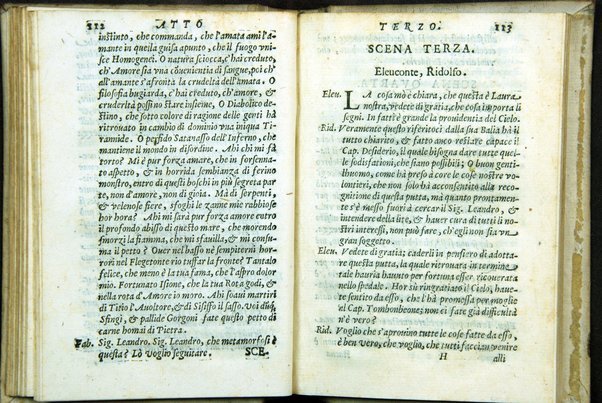 112 ATTO
instinto, che commanda, che l'amata ami l'a-
mante in quella guisa apunto, che il fuogo vni-
sce Homogenei. O natura sciocca, c'hai creduto,
ch'Amore sia vna conuenientia di sangue, poi ch'
all'amante s'afronta la crudeltà dell'amata. O
filosofia bugiarda, c'hai creduto, ch'amore, &
crudeltà possino stare insieme, O Diabolico de-
stino, che sotto colore di ragione delle genti hà
ritrouato in cambio di dominio vna iniqua Ti-
rannide. O perfido Satanasso dell'Inferno, che
mantiene il mondo in disordine. Ahi chi mi fà
torto? Mi è pur forza amare, che in forsenna-
to aspetto, & in horrida sembianza di ferino
mostro, entro di questi boschi in più segreta par
te, non d'amore, non di gioia. Mà di serpenti,
& velenose fiere, sfoghi le zanne mie rabbiose
hor hora? Ahi mi sarà pur forza amare entro
il profondo abisso di questo mare, che morendo
smorzi la fiamma, che mi sfauilla, & mi consu-
ma il petto? Ouer nel basso nè sempiterni hor-
rori nel Flegetonte rio tuffar la fronte? Tantalo
felice, che meno è la tua fama, che l'aspro dolor
mio. Fortunato Isione, che la tua Rota godi, &
nella rota d'Amore io moro. Ahi soaui martiri
di Titio l'Auoltore, & di Sisisso il sasso. Voi dūq;
Sfingi, & pallide Gorgoni fate questo petto di
carne homai di Pietra.
Fab. Sig. Leandro. Sig. Leandro, che metamorfosi è
questa? Lò voglio seguitare. SCE.
TERZO. 113
SCENA TERZA.
Eleuconte, Ridolfo.
Eleu. LA cosa mò è chiara, che questa è Laura
nostra, vedete di gratia, che cosa importa li
segni. In fatti è grande la prouidenza del Cielo.
Rid. Veramente questo riferitoci dalla sua Balia hà il
tutto chiarito, & fatto anco restare capace il
Cap. Desiderio, il quale bisogna dare tutte quel-
le sodisfationi, che siano possibili; O buon gentil-
huomo, come hà preso à core le cose nostre vo-
lontieri, che non solo hà acconsentito alla reco-
gnitione di questa putta, mà quanto prontamen-
te s'è messo fuori à cercar il Sig. Leandro, &
intendere della lite, & hauer cura di tutti li no-
stri interessi, non può fare, ch'egli non sia vn
gran soggetto.
Eleu. Vedete di gratia; caderli in pensiero di adotta-
re questa putta, la quale ritrouata in termine
tale hauria haunto per fortuna esser ricourata
nello spedale. Hor sù ringratiato il Cielo, haue-
te sentito da esso, che l'hà promessa per moglie
al Cap. Tombombeone; non ei fate già difficoltà
n'è vero?
Rid. Voglio che s'apronino tutte le cose fatte da esso,
è ben vero, che voglio, che tutti faccian venire
H alli